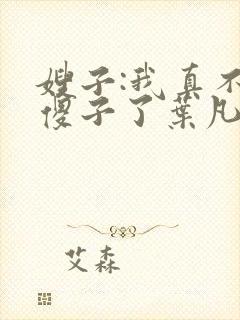 嫂子:我真不
傻子了葉凡
艾森